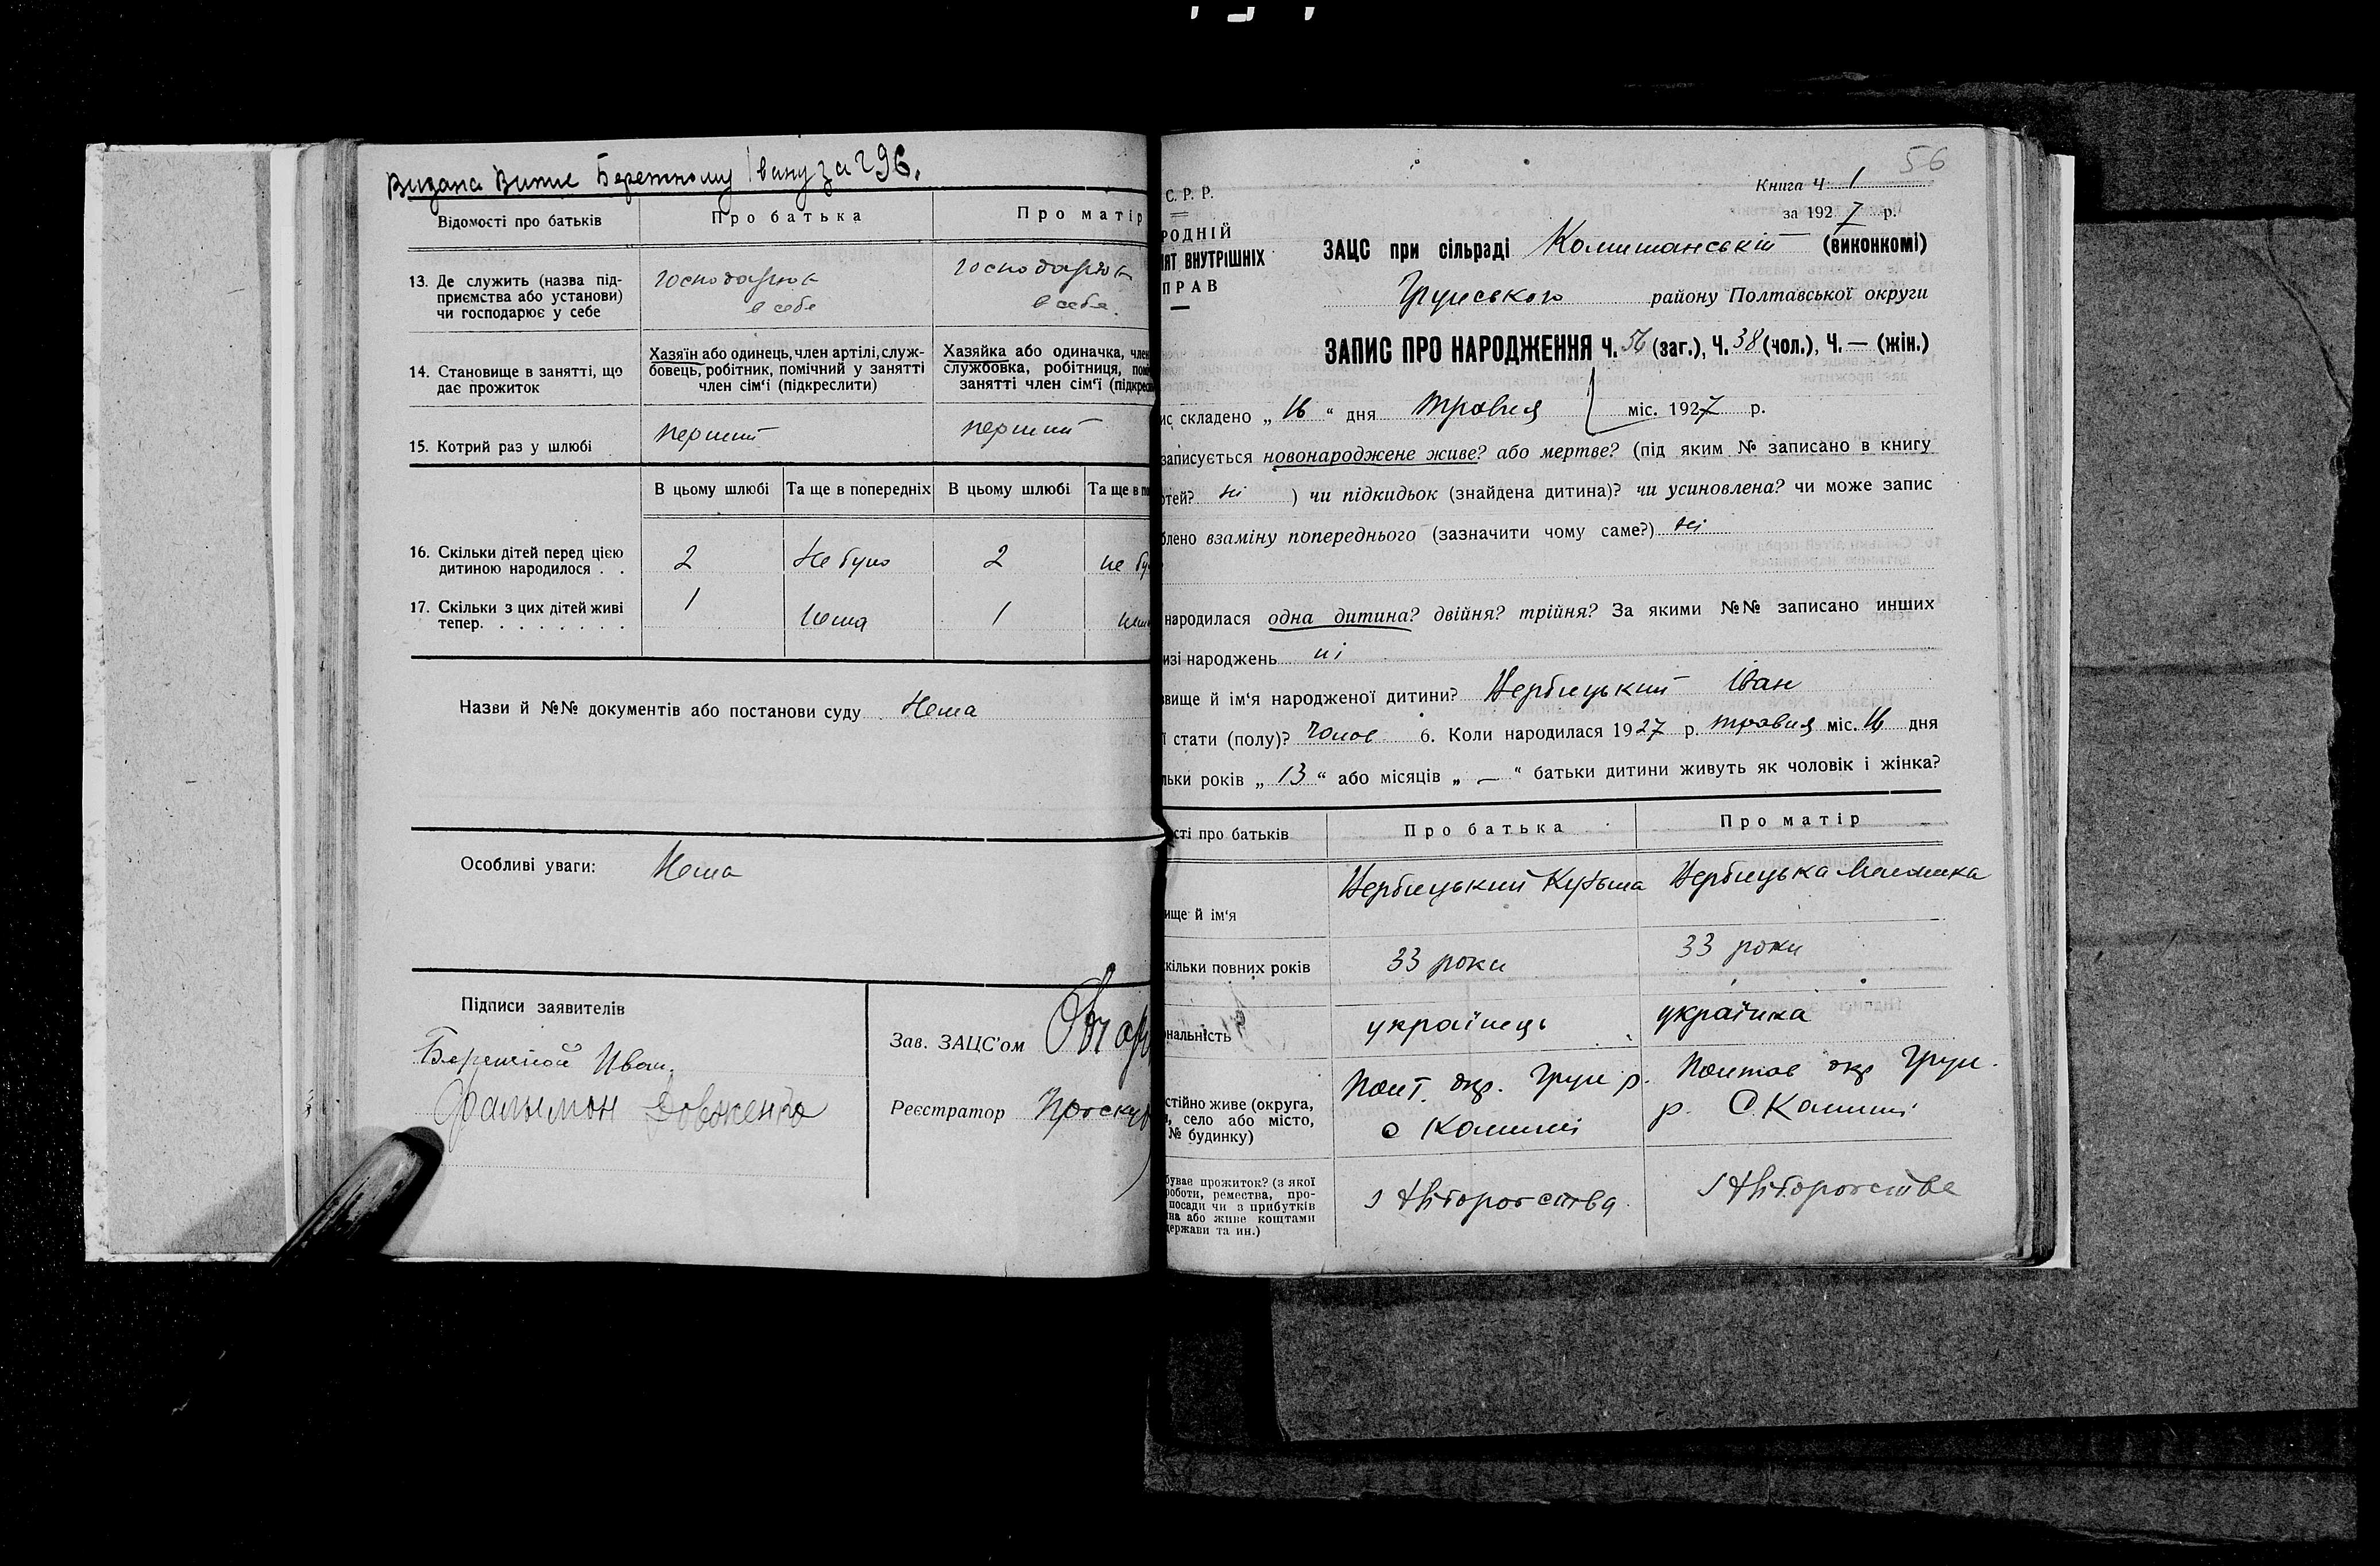 Видана Випис Бережному Івану за Ч 96.
Відомості про батьків
Про батька
Про матір
13. Де служить (назва під-
приємства або установи)
чи господарює у себе
господарює
в себе
господарює
в себе.
14. Становище в занятті, що
дає прожиток
Хазяїн або одинець, член артілі, служ-
бовець, робітник, помічний у занятті
член сім'ї (підкреслити)
Хазяйка або одиначка, член
службовка, робітниця, пом
занятті член сім'ї (підкрес
15. Котрий раз у шлюбі
перший
перший
В цьому шлюбі
Та ще в попередніх
В цьому шлюбі
Та ще в по
16. Скільки дітей перед цією
дитиною народилося . .
2
Не було
2
не бу
17. Скільки з цих дітей живі
тепер. . . . . . . .
1
Нема
1
Назви й №№ документів або постанови суду Нема
Особливі уваги: Нема
Підписи заявителів
Бережной Иван
Фалымон Довженко
Зав. ЗАЦС'ом
Реєстратор Проску
56
Книга Ч 1
за 1927 р.
С. Р. Р.
РОДНІЙ
ІЯТ ВНУТРІШНІХ
ПРАВ
ЗАЦС при сільраді Комишанській (виконкомі)
Грунського району Полтавської округи
ЗАПИС ПРО НАРОДЖЕННЯ Ч. 56 (заг.), Ч. 38 (чол.), Ч. — (жін.)
ис складено „ 16 “ дня травня міс. 1927 р.
записується новонароджене живе? або мертве? (під яким № записано в книгу
ртей? ні ) чи підкидьок (знайдена дитина)? чи усиновлена? чи може запис
блено взаміну попереднього (зазначити чому саме?) ні
народилася одна дитина? двійня? трійня? За якими №№ записано инших
изі народжень ні
звище й ім'я народженої дитини? Вербицький Іван
ї стати (полу)? чолов 6. Коли народилася 1927 р. травня міс. 16 дня
льки років „ 13 “ або місяців „ — “ батьки дитини живуть як чоловік і жінка?
сті про батьків
Про батька
Про матір
вище й ім'я
Вербицький Кузьма
Вербицька
кільки повних років
33 роки
33 роки
ональність
українець
українка
стійно живе (округа,
н, село або місто,
№ будинку)
Полт. окр. Грун р.
с Комиші
Полтав окр Грун.
р. С. Комиші
буває прожиток? (з якої
роботи, ремества, про-
посади чи з прибутків
на або живе коштами
держави та ин.)
з хліборобства
з хліборобства